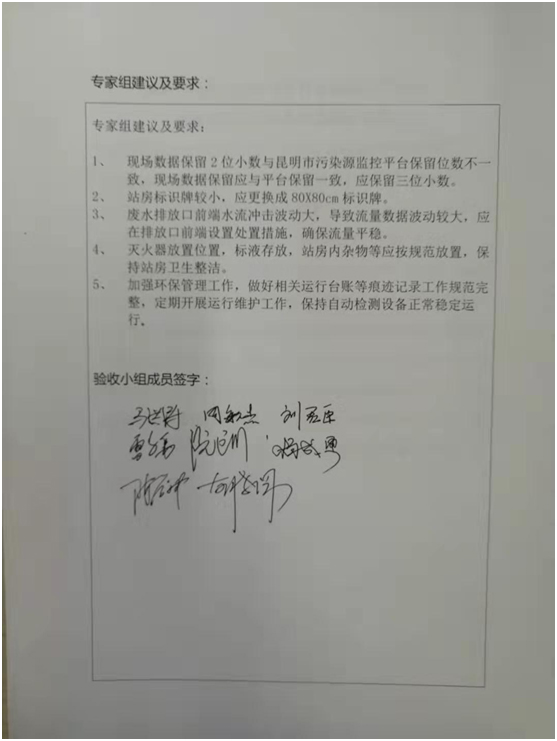 专家组建议及要求：
专家组建议及要求：
1、 现场数据保留2位小数与昆明市污染源监控平台保留位数不一
致，现场数据保留应与平台保留一致，应保留三位小数。
2、 站房标识牌较小，应更换成80X80cm标识牌。
3、 废水排放口前端水流冲击波动大，导致流量数据波动较大，应
在排放口前端设置处置措施，确保流量平稳。
4、 灭火器放置位置，标液存放，站房内杂物等应按规范放置，保
持站房卫生整洁。
5、 加强环保管理工作，做好相关运行台账等痕迹记录工作规范完
整，定期开展运行维护工作，保持自动检测设备正常稳定运
行。
验收小组成员签字：